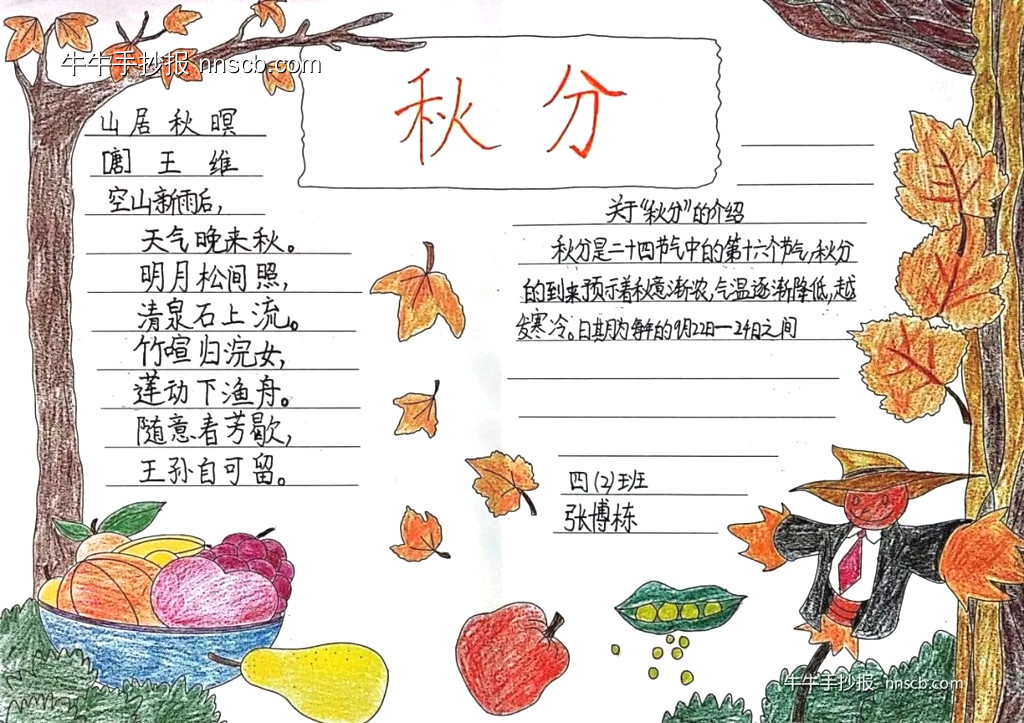 牛牛手抄报 nnscb.com
秋分
山居秋暝
[唐] 王维
空山新雨后，
天气晚来秋。
明月松间照，
清泉石上流。
竹喧归浣女，
莲动下渔舟。
随意春芳歇，
王孙自可留。
关于“秋分”的介绍
秋分是二十四节气中的第十六个节气，秋分
的到来预示着秋意渐浓，气温逐渐降低，越
发寒冷。日期为每年的9月22日—24日之间
四(2)班
张博栋
牛牛手抄报 nnscb.com